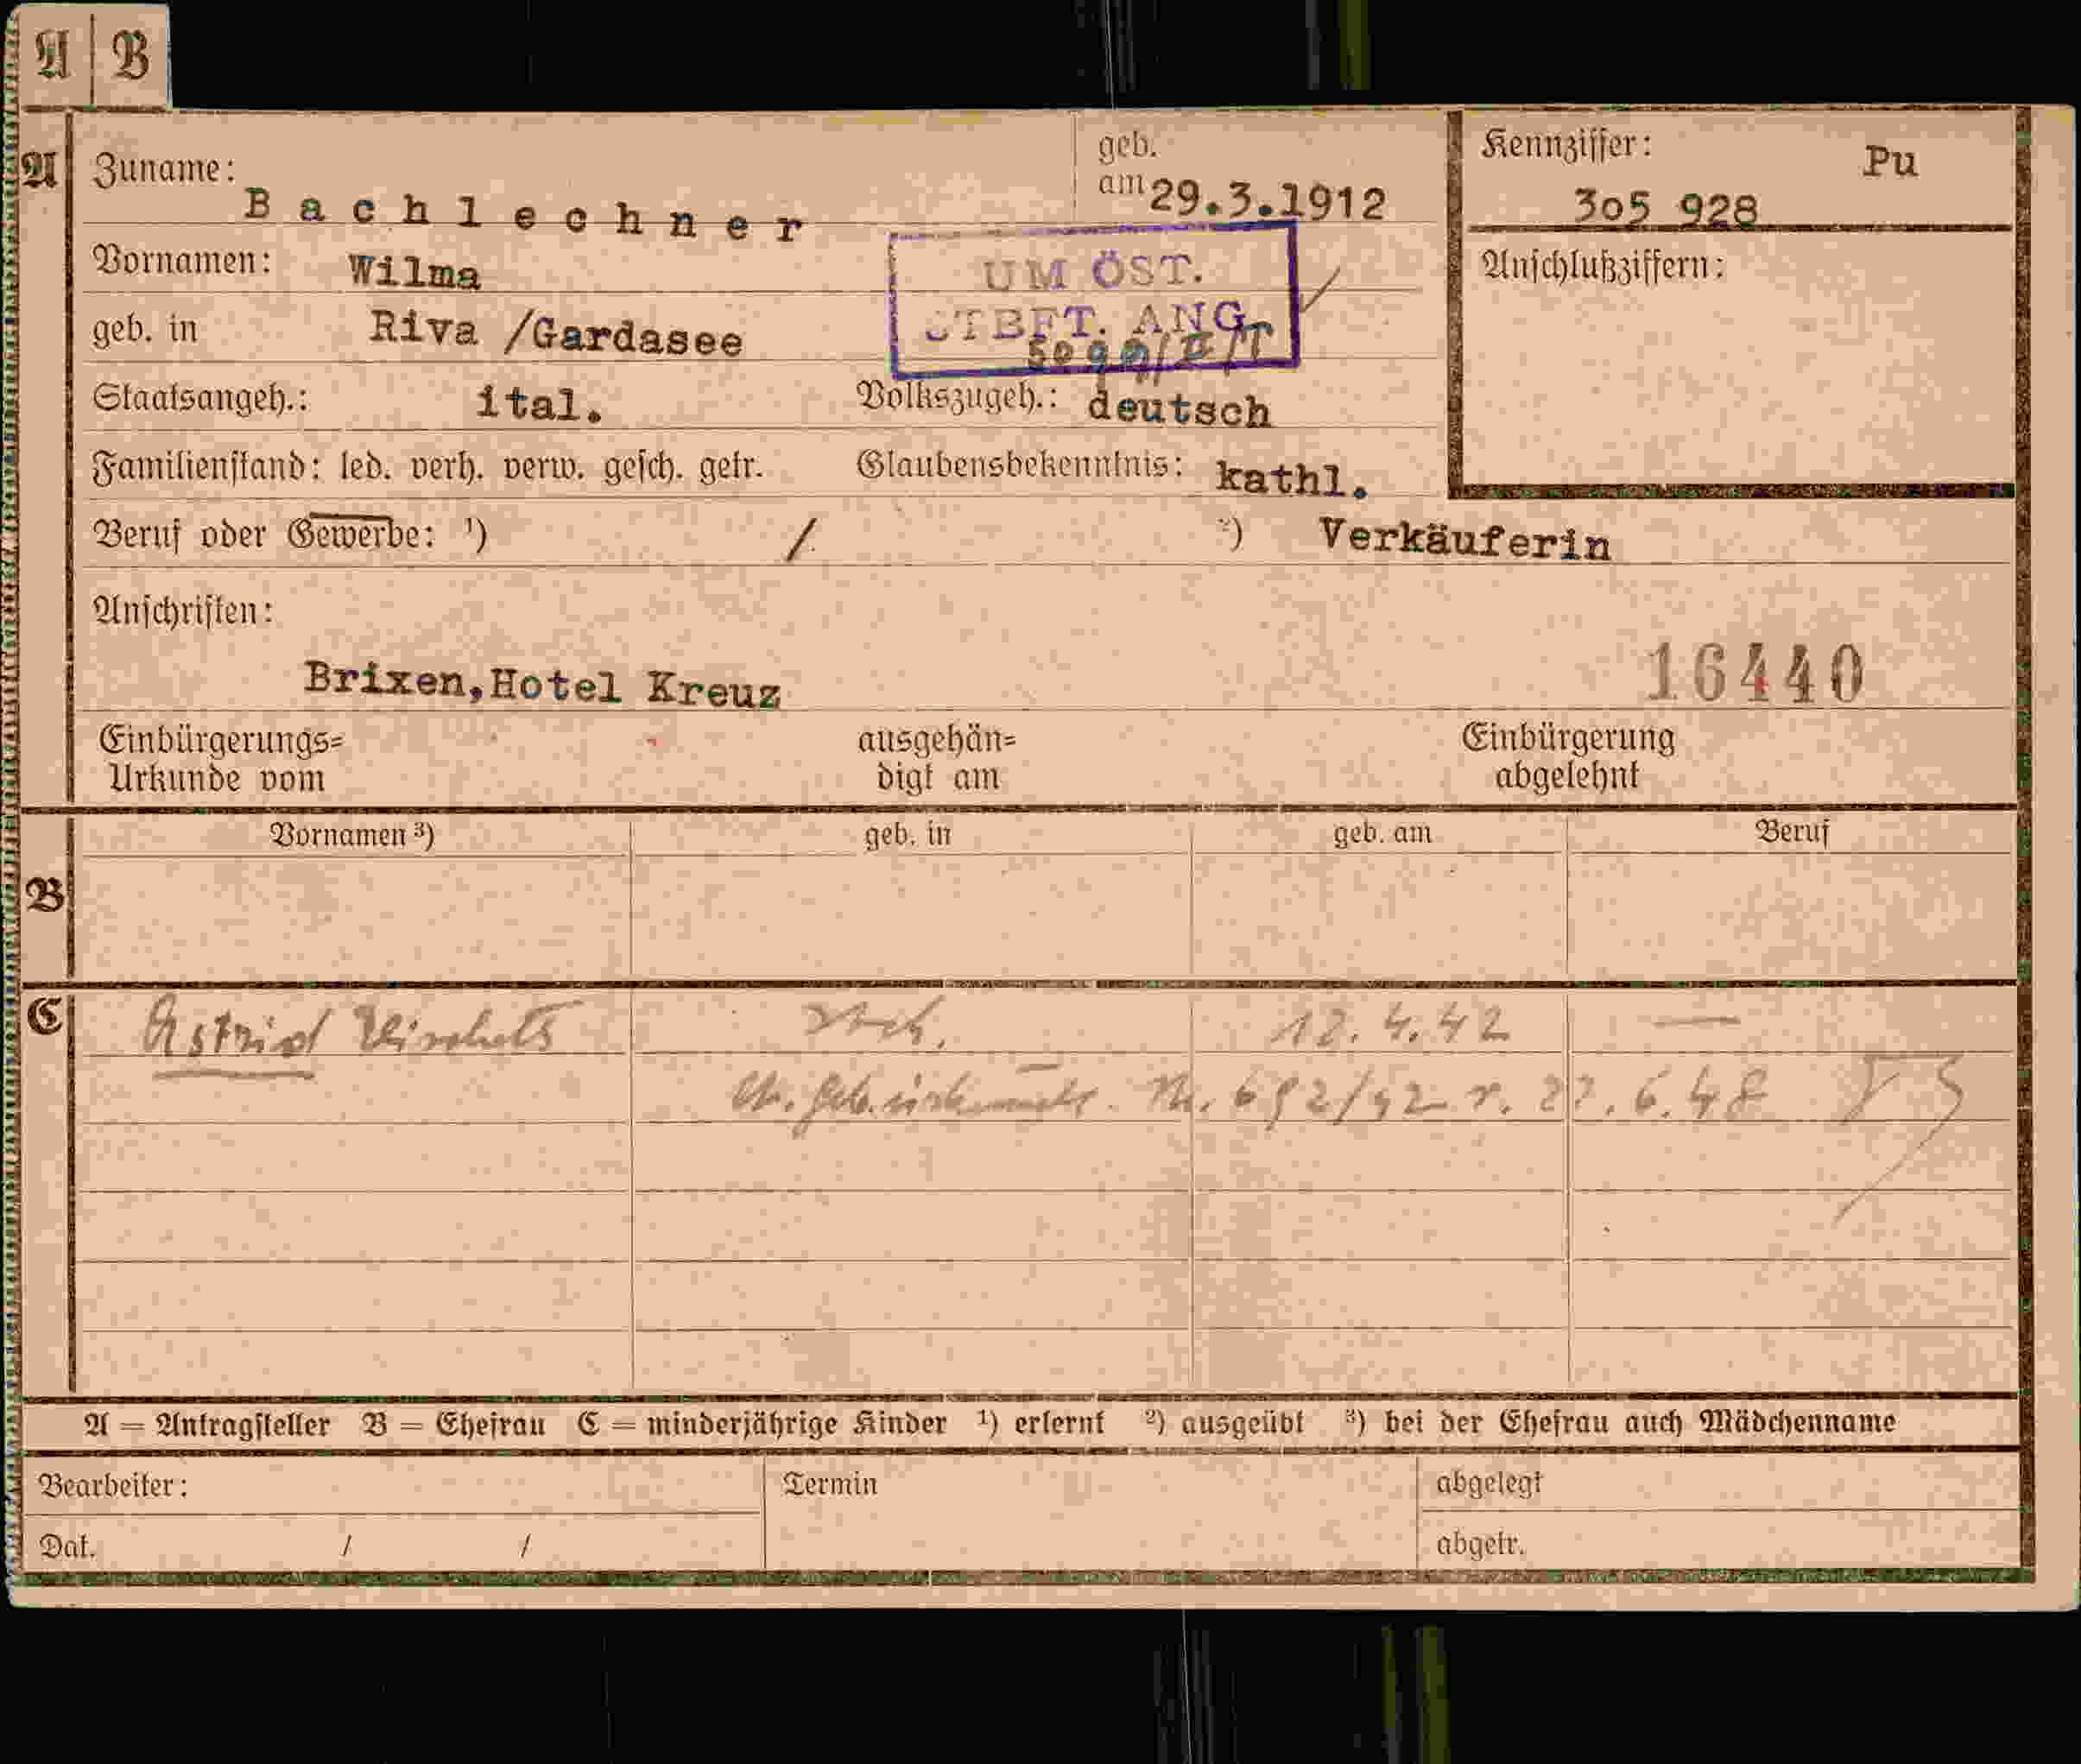 A | B
A Zuname: Bachlechner geb. am 29.3.1912 Kennziffer: Pu 305 928
Vornamen: Wilma
UM ÖST.
STBFT. ANG.
Anschlußziffern:
geb. in Riva /Gardasee
Staatsangeh.: ital. Volkszugeh.: deutsch
Familienstand: led. verh. verw. gesch. getr. Glaubensbekenntnis: kathl.
Beruf oder Gewerbe: ¹) / ²) Verkäuferin
Anschriften:
Brixen,Hotel Kreuz 16440
Einbürgerungs= ausgehän= Einbürgerung
Urkunde vom digt am abgelehnt
Vornamen ³) geb. in geb. am Beruf
B
C Astrid 12.4.42 —
Nr. 692/42 v. 22.6.48
A = Antragsteller B = Ehefrau C = minderjährige Kinder ¹) erlernt ²) ausgeübt ³) bei der Ehefrau auch Mädchenname
Bearbeiter: Termin abgelegt
Dat. / / abgetr.